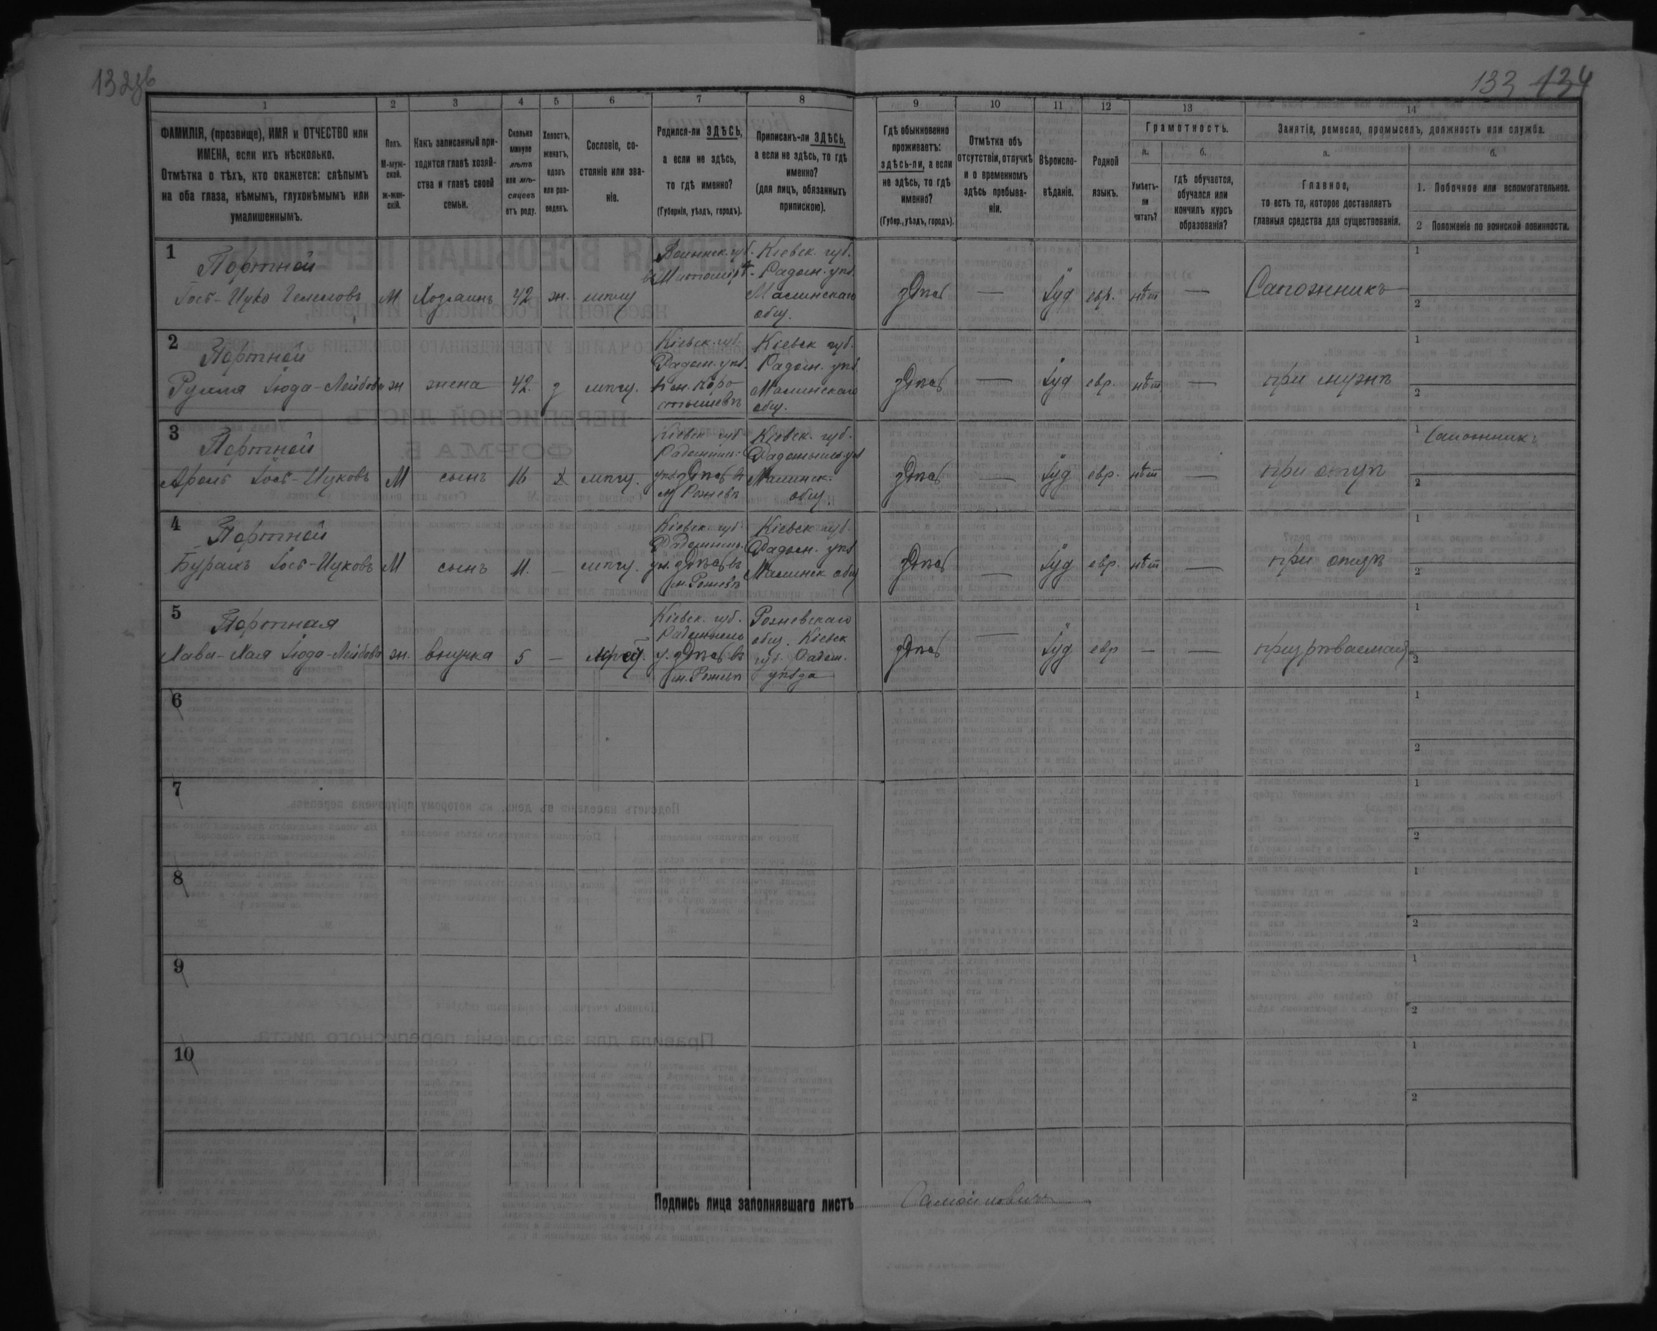 132об
133 134
1 2 3 4 5 6 7 8 9 10 11 12 13 14
ФАМИЛІЯ, (прозвище), ИМЯ и ОТЧЕСТВО или ИМЕНА, если ихъ нѣсколько.
Отмѣтка о тѣхъ, кто окажется: слѣпымъ на оба глаза, нѣмымъ, глухонѣмымъ или умалишеннымъ.
Полъ.
М-мужской.
ж-женскій.
Какъ записанный приходится главѣ хозяйства и главѣ своей семьи.
Сколько минуло лѣтъ или мѣсяцевъ отъ роду.
Холостъ, женатъ, вдовъ или разведенъ.
Сословіе, состояніе или званіе.
Родился-ли ЗДѢСЬ, а если не здѣсь, то гдѣ именно?
(Губернія, уѣздъ, городъ).
Приписанъ-ли ЗДѢСЬ, а если не здѣсь, то гдѣ именно?
(для лицъ, обязанныхъ припискою).
Гдѣ обыкновенно проживаетъ: здѣсь-ли, а если не здѣсь, то гдѣ именно?
(Губер., уѣздъ, городъ).
Отмѣтка объ отсутствіи, отлучкѣ и о временномъ здѣсь пребываніи.
Вѣроисповѣданіе.
Родной языкъ.
Грамотность.
а.
Умѣетъ-ли читать?
б.
гдѣ обучается, обучался или кончилъ курсъ образованія?
Занятіе, ремесло, промыселъ, должность или служба.
а.
Главное,
то есть то, которое доставляетъ главныя средства для существованія.
б.
1. Побочное или вспомогательное.
2 Положеніе по воинской повинности.
1
Портной
Іось-Ицко М Хозяинъ 42 ж. мѣщ
Волынск. губ.
Кіевск. губ. Радом. уѣз. Малинскаго общ.
здѣсь — Іуд евр. нѣт — Сапожникъ
1
2
2
Портной
Рухля Іюда-Лейбова ж жена 42 з мѣщ.
Кіевск. губ. Радом. уѣз. в м. Коростышевѣ
Кіевск губ. Радом. уѣз Малинскаго общ.
здѣсь — Іуд евр. нѣт — при мужѣ
1
2
3
Портной
Аронъ Іось-Ицковъ М сынъ 16 х мѣщ.
Кіевск губ. Радомысл. уѣз. здѣсь в м Рожевъ
Кіевск. губ. Радомысл. уѣз Малинск. общ.
здѣсь — Іуд евр. нѣт — при отцѣ
1 Сапожник.
2
4
Портной
Іось-Ицковъ М сынъ 11. — мѣщ.
Кіевск губ. Радомысл. уѣз. здѣсь въ м. Рожевъ
Кіевск губ. Радом. уѣз Малинск общ
здѣсь — Іуд евр. нѣт — при отцѣ
1
2
5
Портная
Іюда-Лейбова ж. внучка 5 — мѣщ.
Кіевск. губ. Радомысл у. здѣсь въ м. Рожевъ
Рожевскаго общ. Кіевск губ. Радом. уѣзда
здѣсь — Іуд евр — — призрѣваемая
1
2
6
1
2
7
1
2
8
1
2
9
1
2
10
1
2
Подпись лица заполнявшаго листъ Самойловичъ